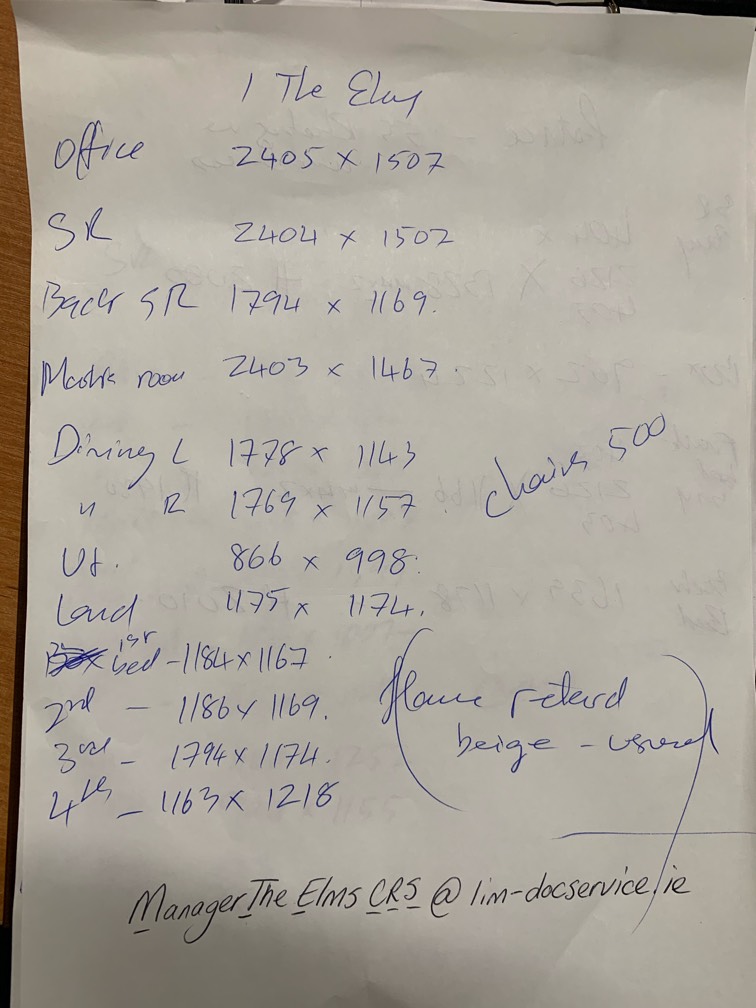 1 The Elms
Office 2405 x 1507
SR 2404 x 1502
Back SR 1794 x 1169.
Media room 2403 x 1467.
Dining L 1778 x 1143
" R 1769 x 1157
chairs 500
Ut. 866 x 998.
Land 1175 x 1174.
1st bed - 1184 x 1167
2nd - 1186 x 1169.
3rd - 1794 x 1174.
4th - 1163 x 1218
flame retard
beige - usual
ManagerTheElmsCRS@lim-docservice.ie